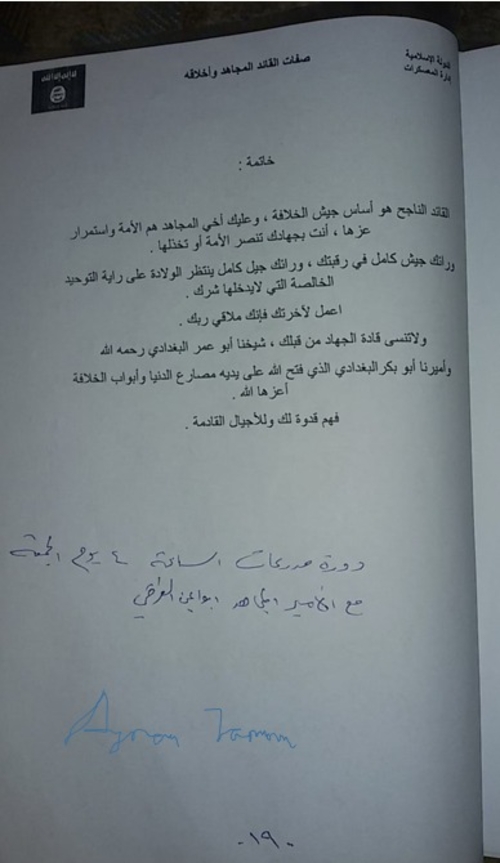 الدولة الإسلامية
إدارة المعسكرات
صفات القائد المجاهد وأخلاقه
خاتمة :
القائد الناجح هو أساس جيش الخلافة ، وعليك أخي المجاهد هم الأمة واستمرار
عزها ، أنت بجهادك تنصر الأمة أو تخذلها .
ورائك جيش كامل في رقبتك ، ورائك جيل كامل ينتظر الولادة على راية التوحيد
الخالصة التي لايدخلها شرك .
اعمل لآخرتك فإنك ملاقي ربك .
ولاتنسى قادة الجهاد من قبلك ، شيخنا أبو عمر البغدادي رحمه الله
وأميرنا أبو بكر البغدادي الذي فتح الله على يديه مصارع الدنيا وأبواب الخلافة
أعزها الله .
فهم قدوة لك وللأجيال القادمة .
دورة مدرعات الساعة ٤ يوم الجمعة
مع الأمير المجاهد ابو العراقي
- ١٩ -